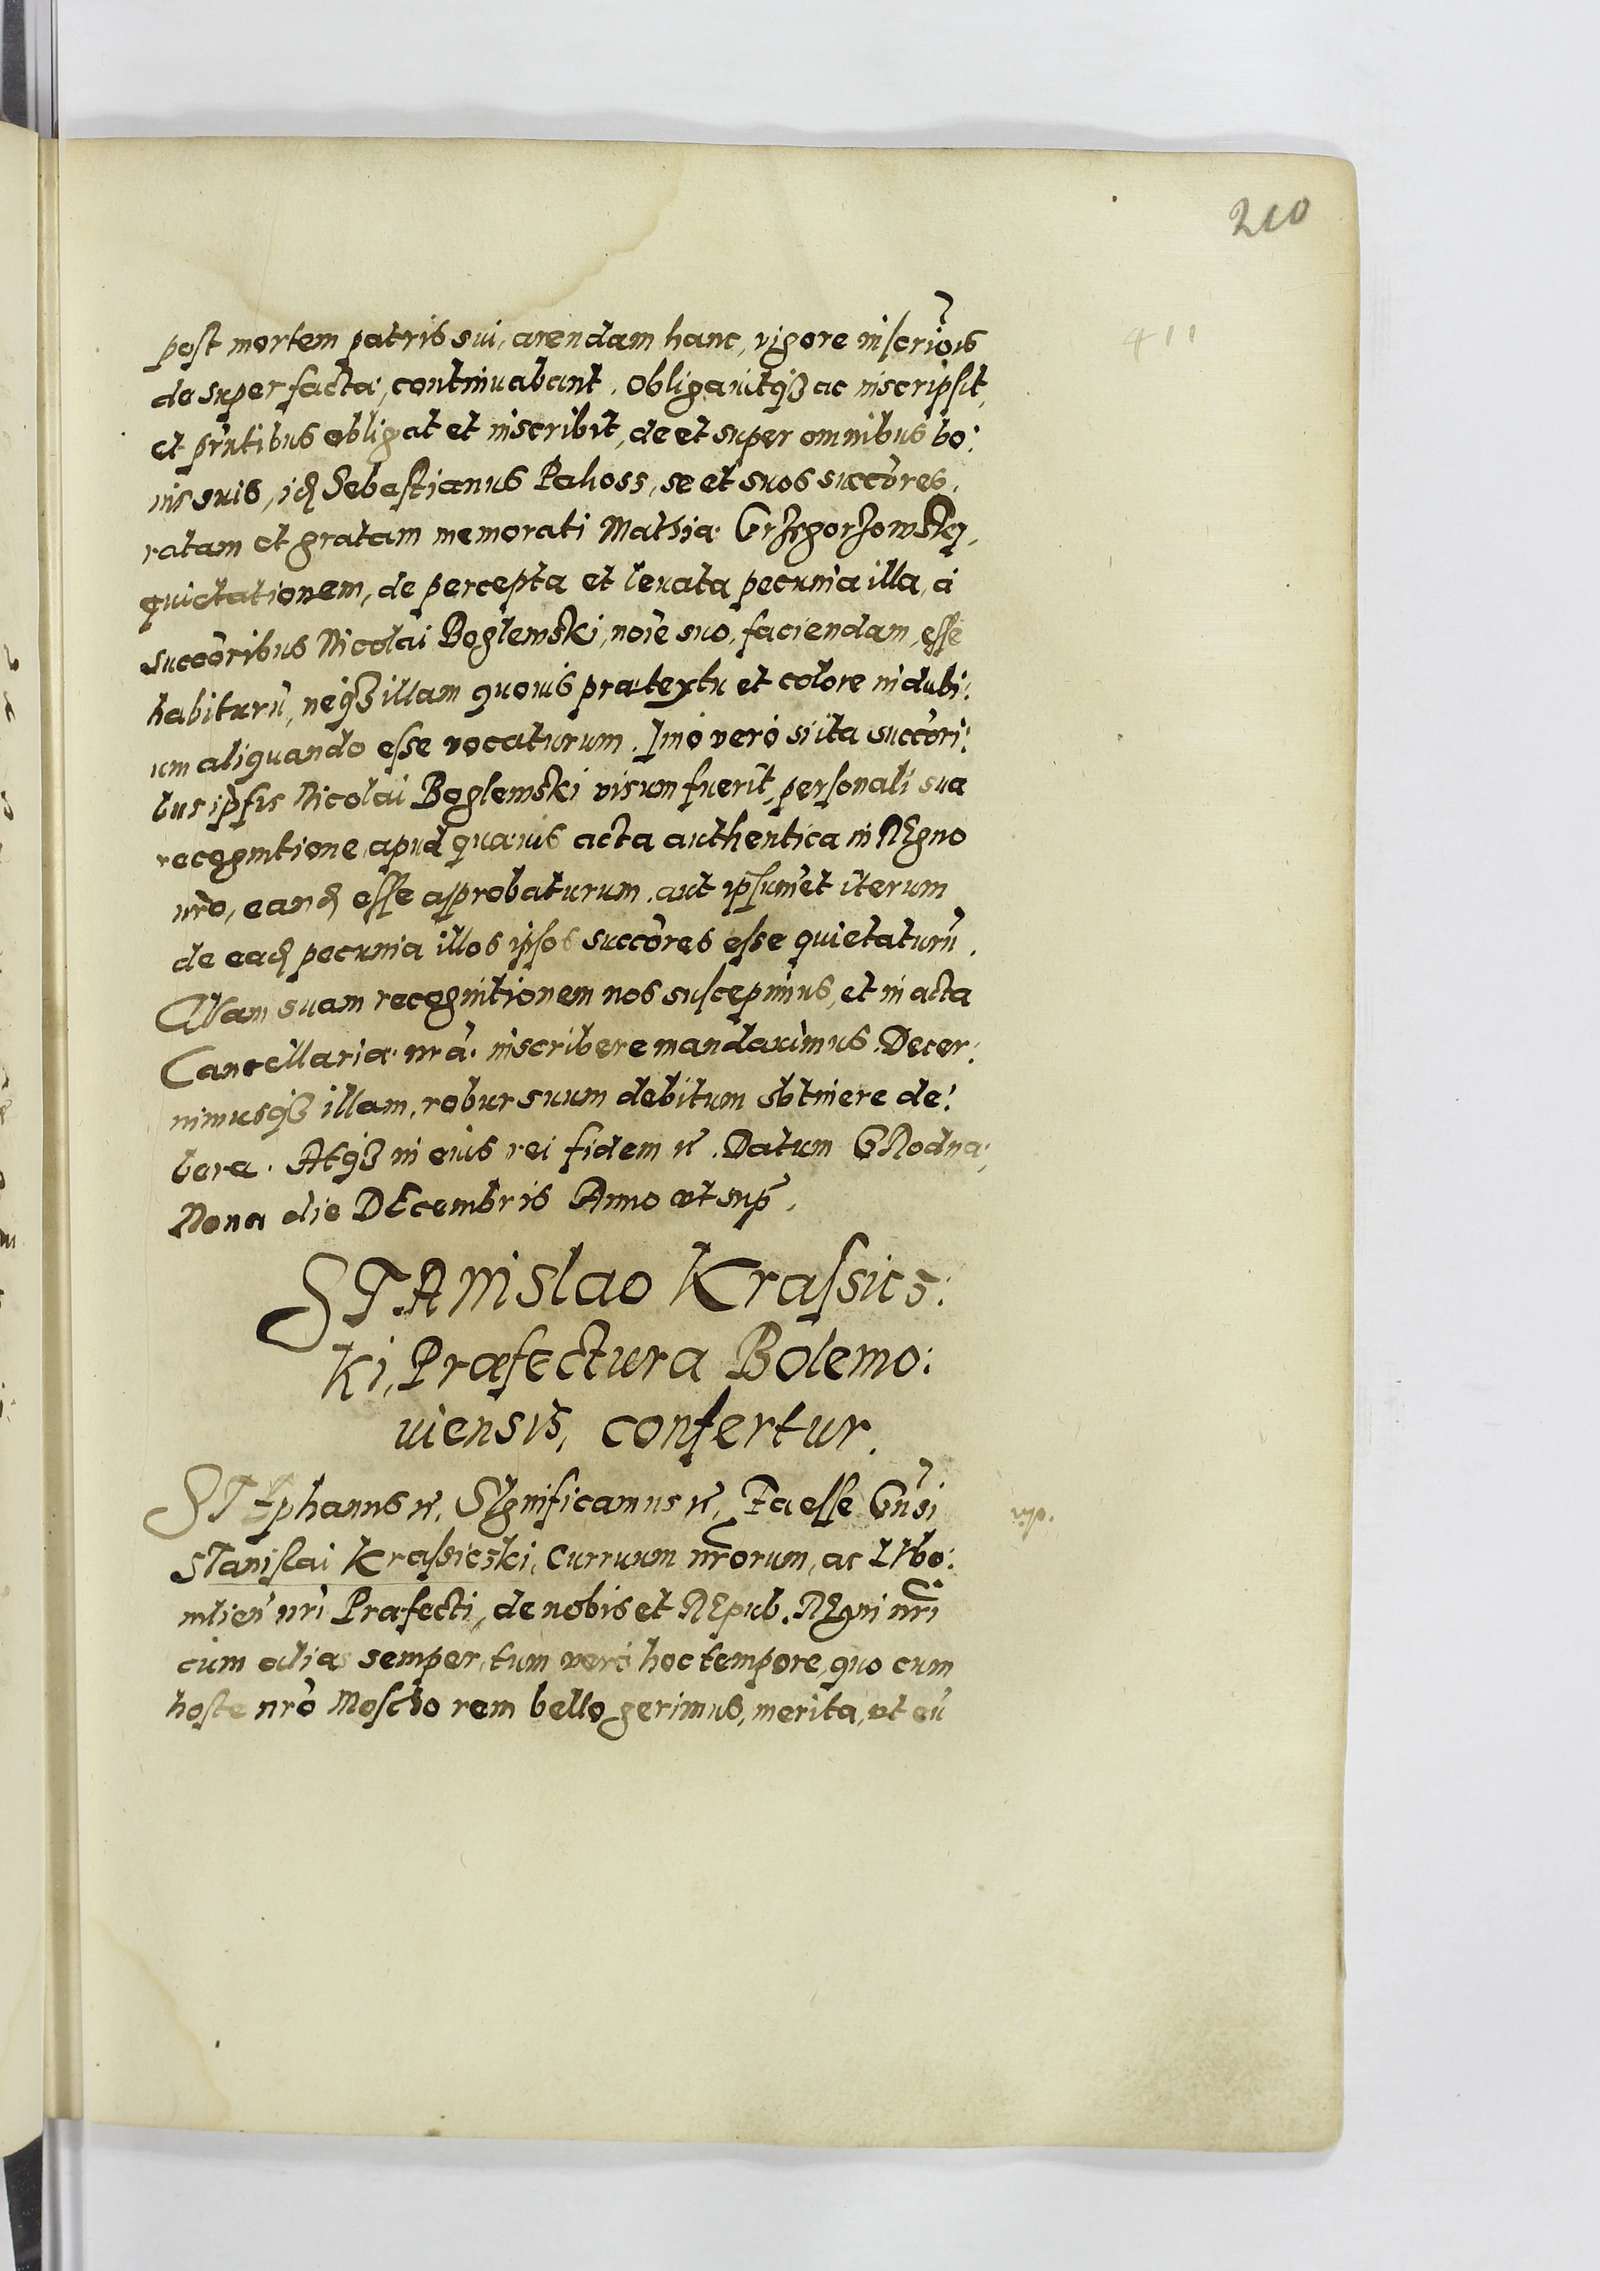 210
411
post mortem patris sui, arendam hanc, vigore inscriõis
desuper facta, continuabant. Obligauitqȝ ac inscripsit,
et pñtibus obligat et inscribit, de et super omnibus bo:
nis suis, idẽ Sebastianus Pahoss, se et suos succõres,
ratam et gratam memorati Mathiæ GrzegorzowskỸ,
quietationem, de percepta et leuata pecunia illa, à
succõribus Nicolai Boglewski, noĩe suo, faciendam, esse
habiturũ, neqȝ illam quouis prætextu et colore in dubi:
um aliquando esse vocaturum. Imò verò si ita succõri:
bus ipsis Nicolai Boglewski visum fuerit, personali sua
recognitione, apud quæuis acta authentica in REgno
nr̃o, eandẽ esse approbaturum, aut ipsummet iterum
de eadẽ pecunia illos ipsos succõres esse quietaturũ.
Quam suam recognitionem nos suscepimus, et in acta
Cancellariæ nr̃æ inscribere mandauimus. Decer:
nimusqȝ illam, robur suum debitum obtinere de:
bere. Atqȝ in eius rei fidem etc. Datum GRodnæ,
Nona die DEcembris Anno vt sup̃.
STAnislao Krassics:
ki, Præfectura Bolemo:
uiensis, confertur.
STEphanus etc. SIgnificamus etc. Ea esse Gñsi
Stanislai Krassicski, Curruum nr̃orum, ac LVbo:
mlieñ nr̃i Præfecti, de nobis et REpub. REgni nr̃i
cum alias semper, tum verò hoc tempore, quo cum
hoste nr̃o Moscho rem bello gerimus, merita, vt eũ